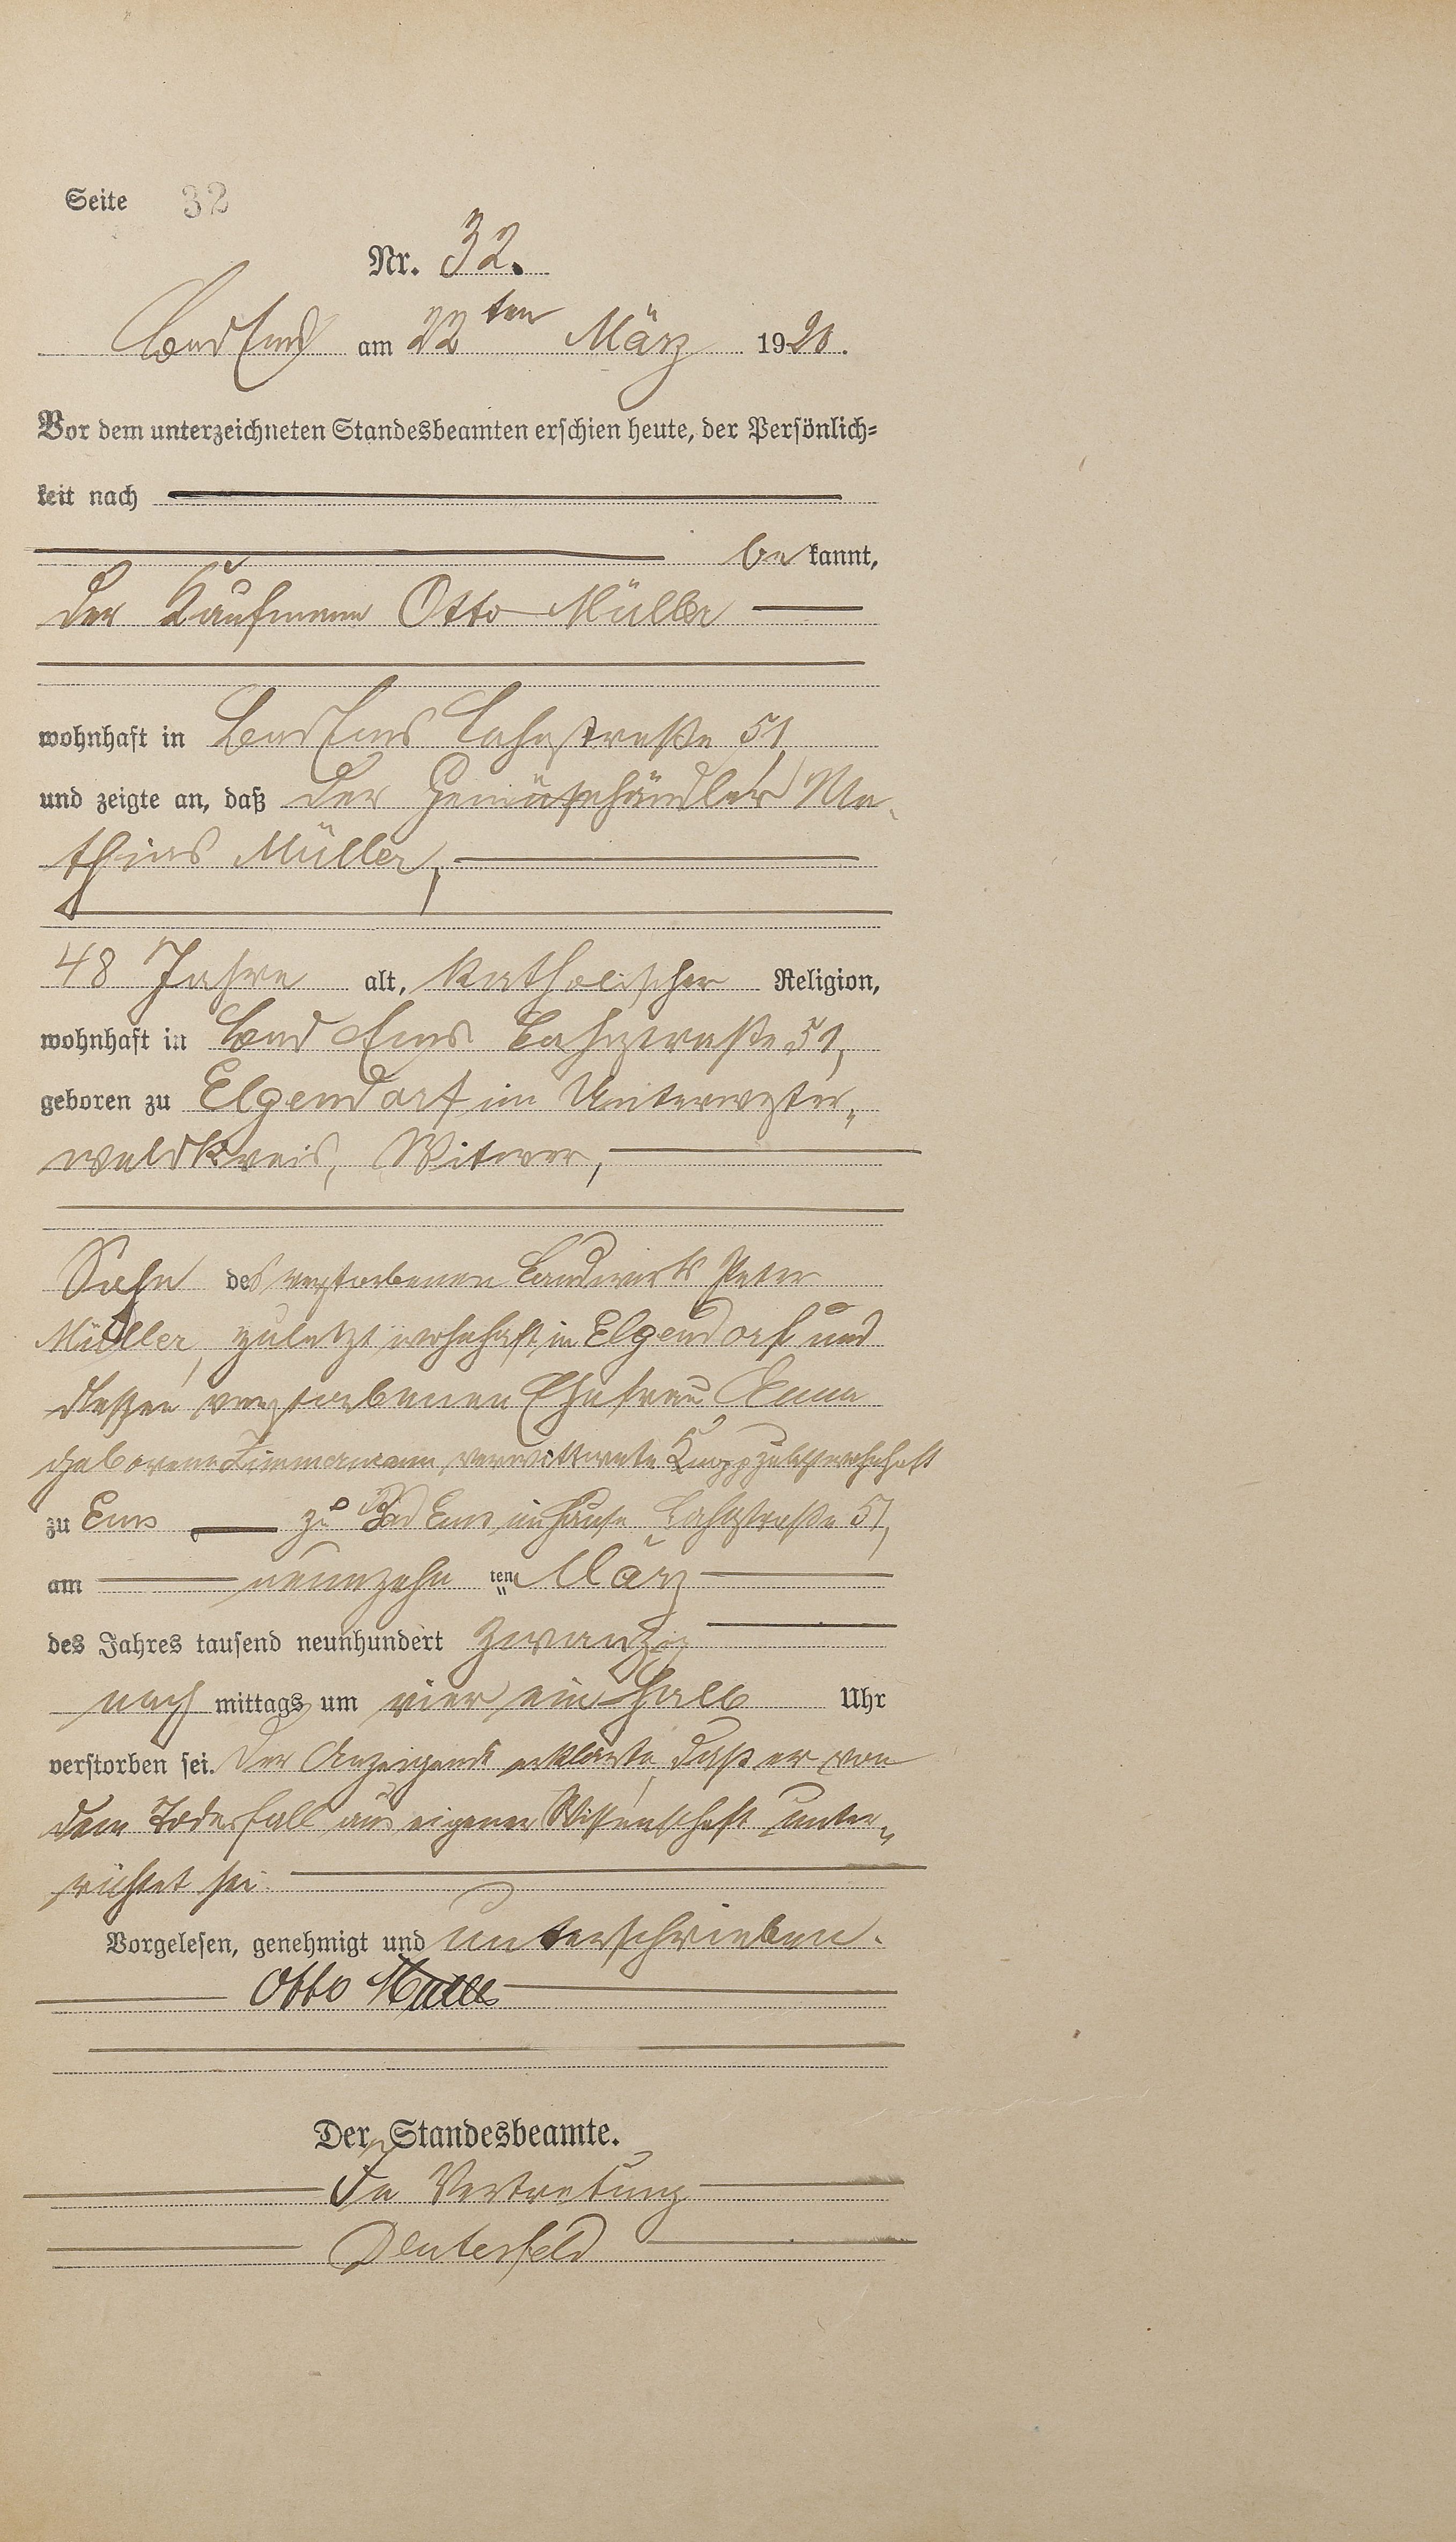 Seite 32
Nr. 32.
Bad Ems am 22ten März 1920.
Vor dem unterzeichneten Standesbeamten erschien heute, der Persönlich=
keit nach
be kannt,
der Kaufmann Otto Müller
wohnhaft in Bad Ems Lahnstraße 51
und zeigte an, daß der Gemüsehändler Ma-
thias Müller,
48 Jahre alt, katholischer Religion,
wohnhaft in Bad Ems Lahnstraße 51,
geboren zu Elgendorf im Unterwester-
waldkreis, Witwer,
Sohn des verstorbenen Landwirts Peter
Müller, zuletzt wohnhaft in Elgendorf und
dessen verstorbenen Ehefrau Anna
geborene Zimmermann, verwittwete Knopp zuletzt wohnhaft
zu Ems zu Bad Ems im Hause Lahnstraße 51,
am neunzehn ten März
des Jahres tausend neunhundert zwanzig
nach mittags um vier ein halb Uhr
verstorben sei. Der Anzeigende erklärte, daß er von
dem Todesfall aus eigener Wissenschaft unter-
richtet sei
Vorgelesen, genehmigt und unterschrieben.
Otto Müller
Der Standesbeamte.
In Vertretung